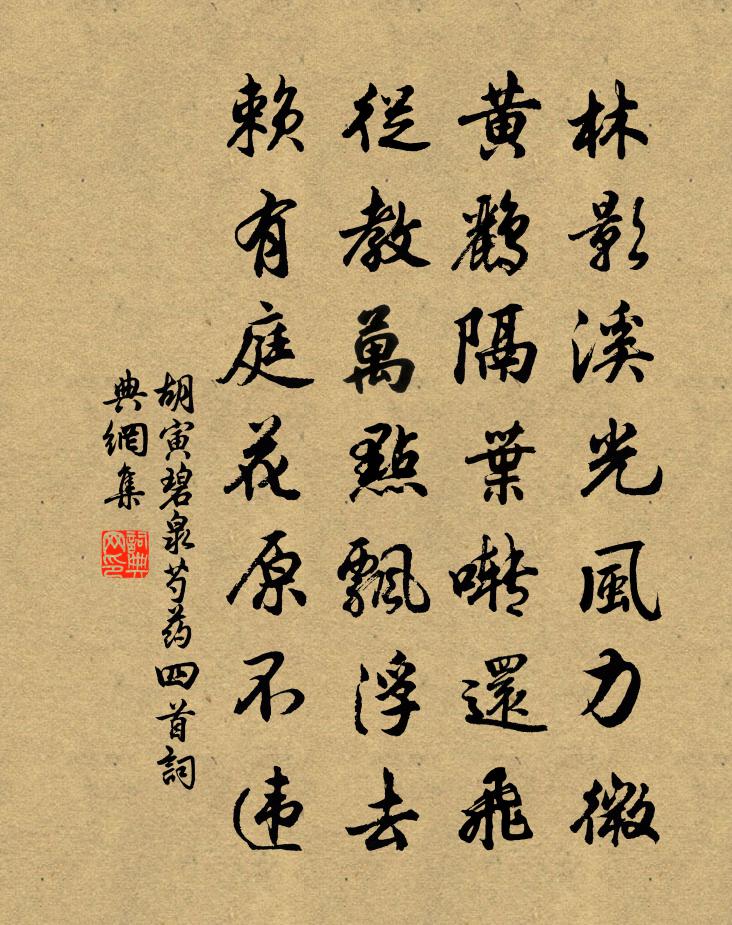 林影溪光風力微
黃鸝隔葉囀還飛
從教萬點飄浮去
賴有庭花原不违
胡寅碧泉芍药四首詞
典網集
詞典
网印